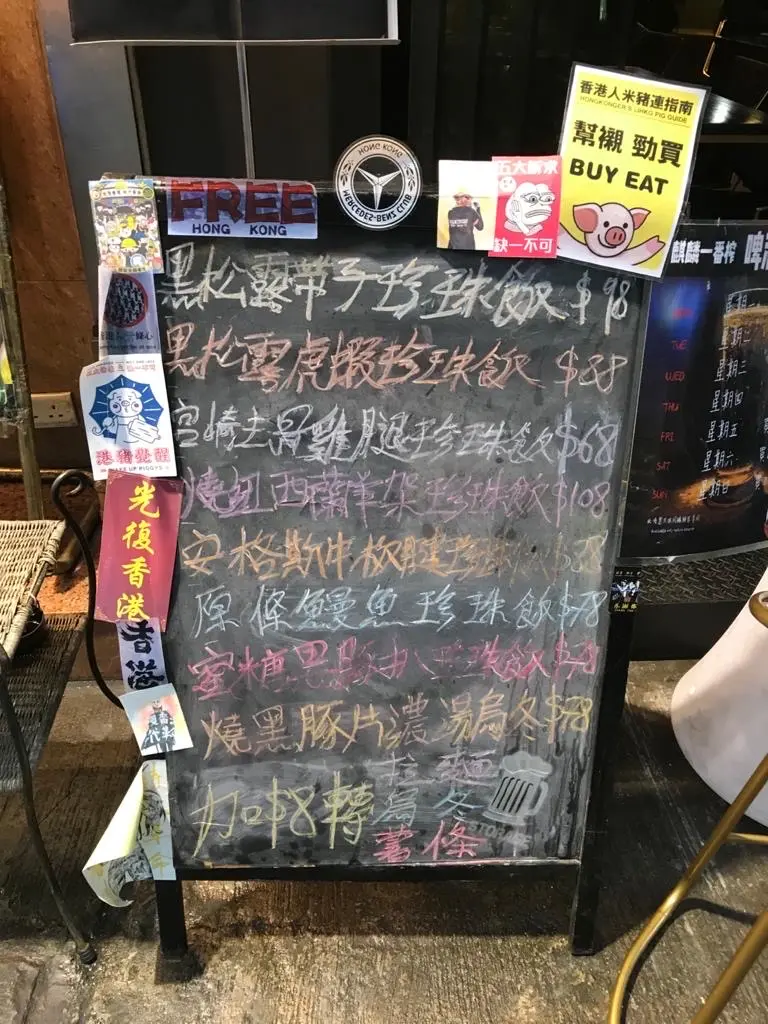 香港人米豬連指南
HONGKONGER'S LIHKG PIG GUIDE
幫襯 勁買
BUY EAT
FREE
HONG KONG
HONG KONG
MERCEDES-BENZ CLUB
五大訴求
缺一不可
黑松露帶子珍珠飯 $98
黑松露虎蝦珍珠飯 $88
宮崎走骨雞腿珍珠飯 $68
燒紐西蘭羊架珍珠飯 $108
安格斯牛板腱珍珠飯
原條鰻魚珍珠飯 $78
蜜糖黑豚扒珍珠飯
燒黑豚片濃湯烏冬 $78
拉麵
加$8轉 烏冬
薯條
港豬覺醒
WAKE UP PIGGYS
光復香港
香港
麒麟一番榨 啤酒
星期一
TUE 星期二
WED 星期三
THU 星期四
FRI 星期五
SAT 星期六
SUN 星期日